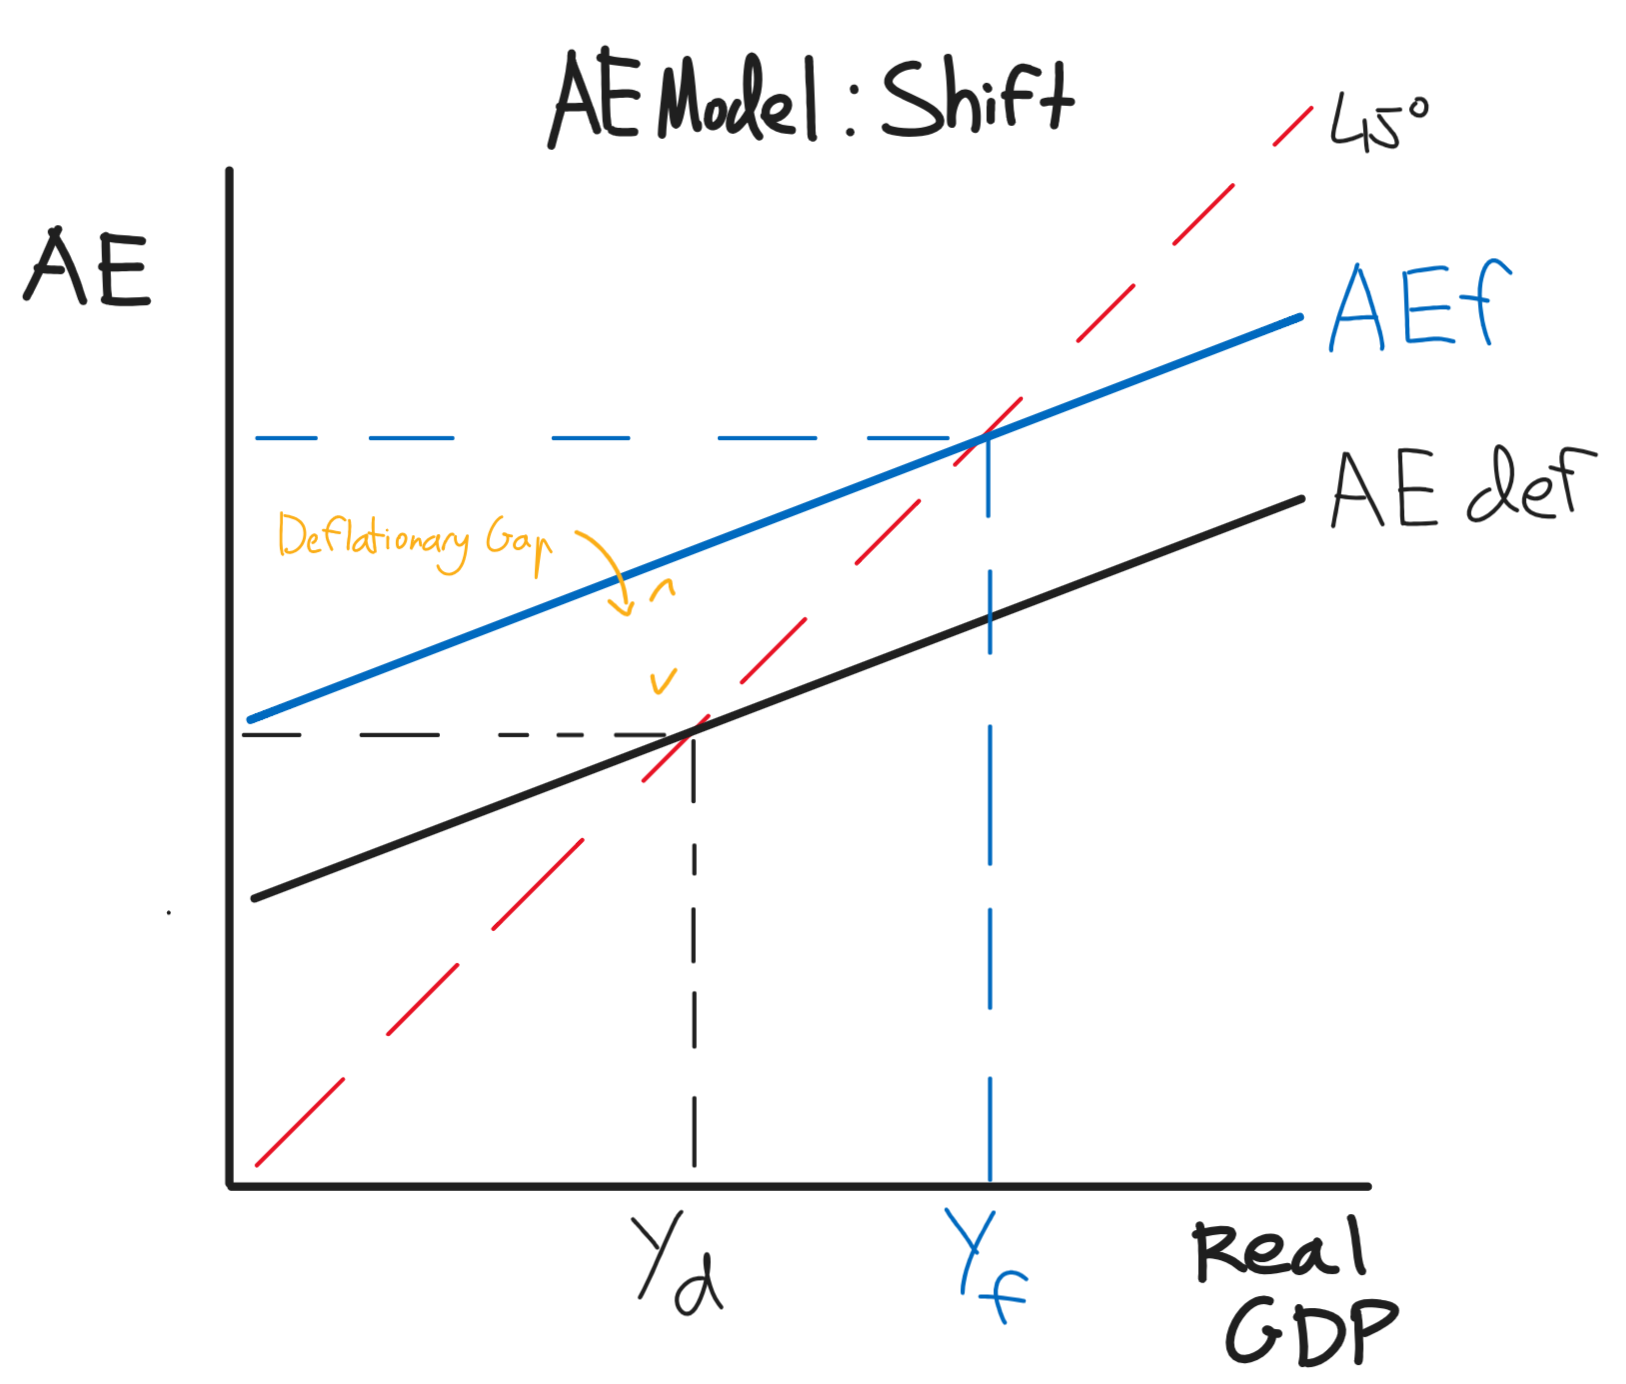 AE Model : Shift
45°
AE
AEf
AE def
Deflationary Gap
Yd
Yf
Real
GDP